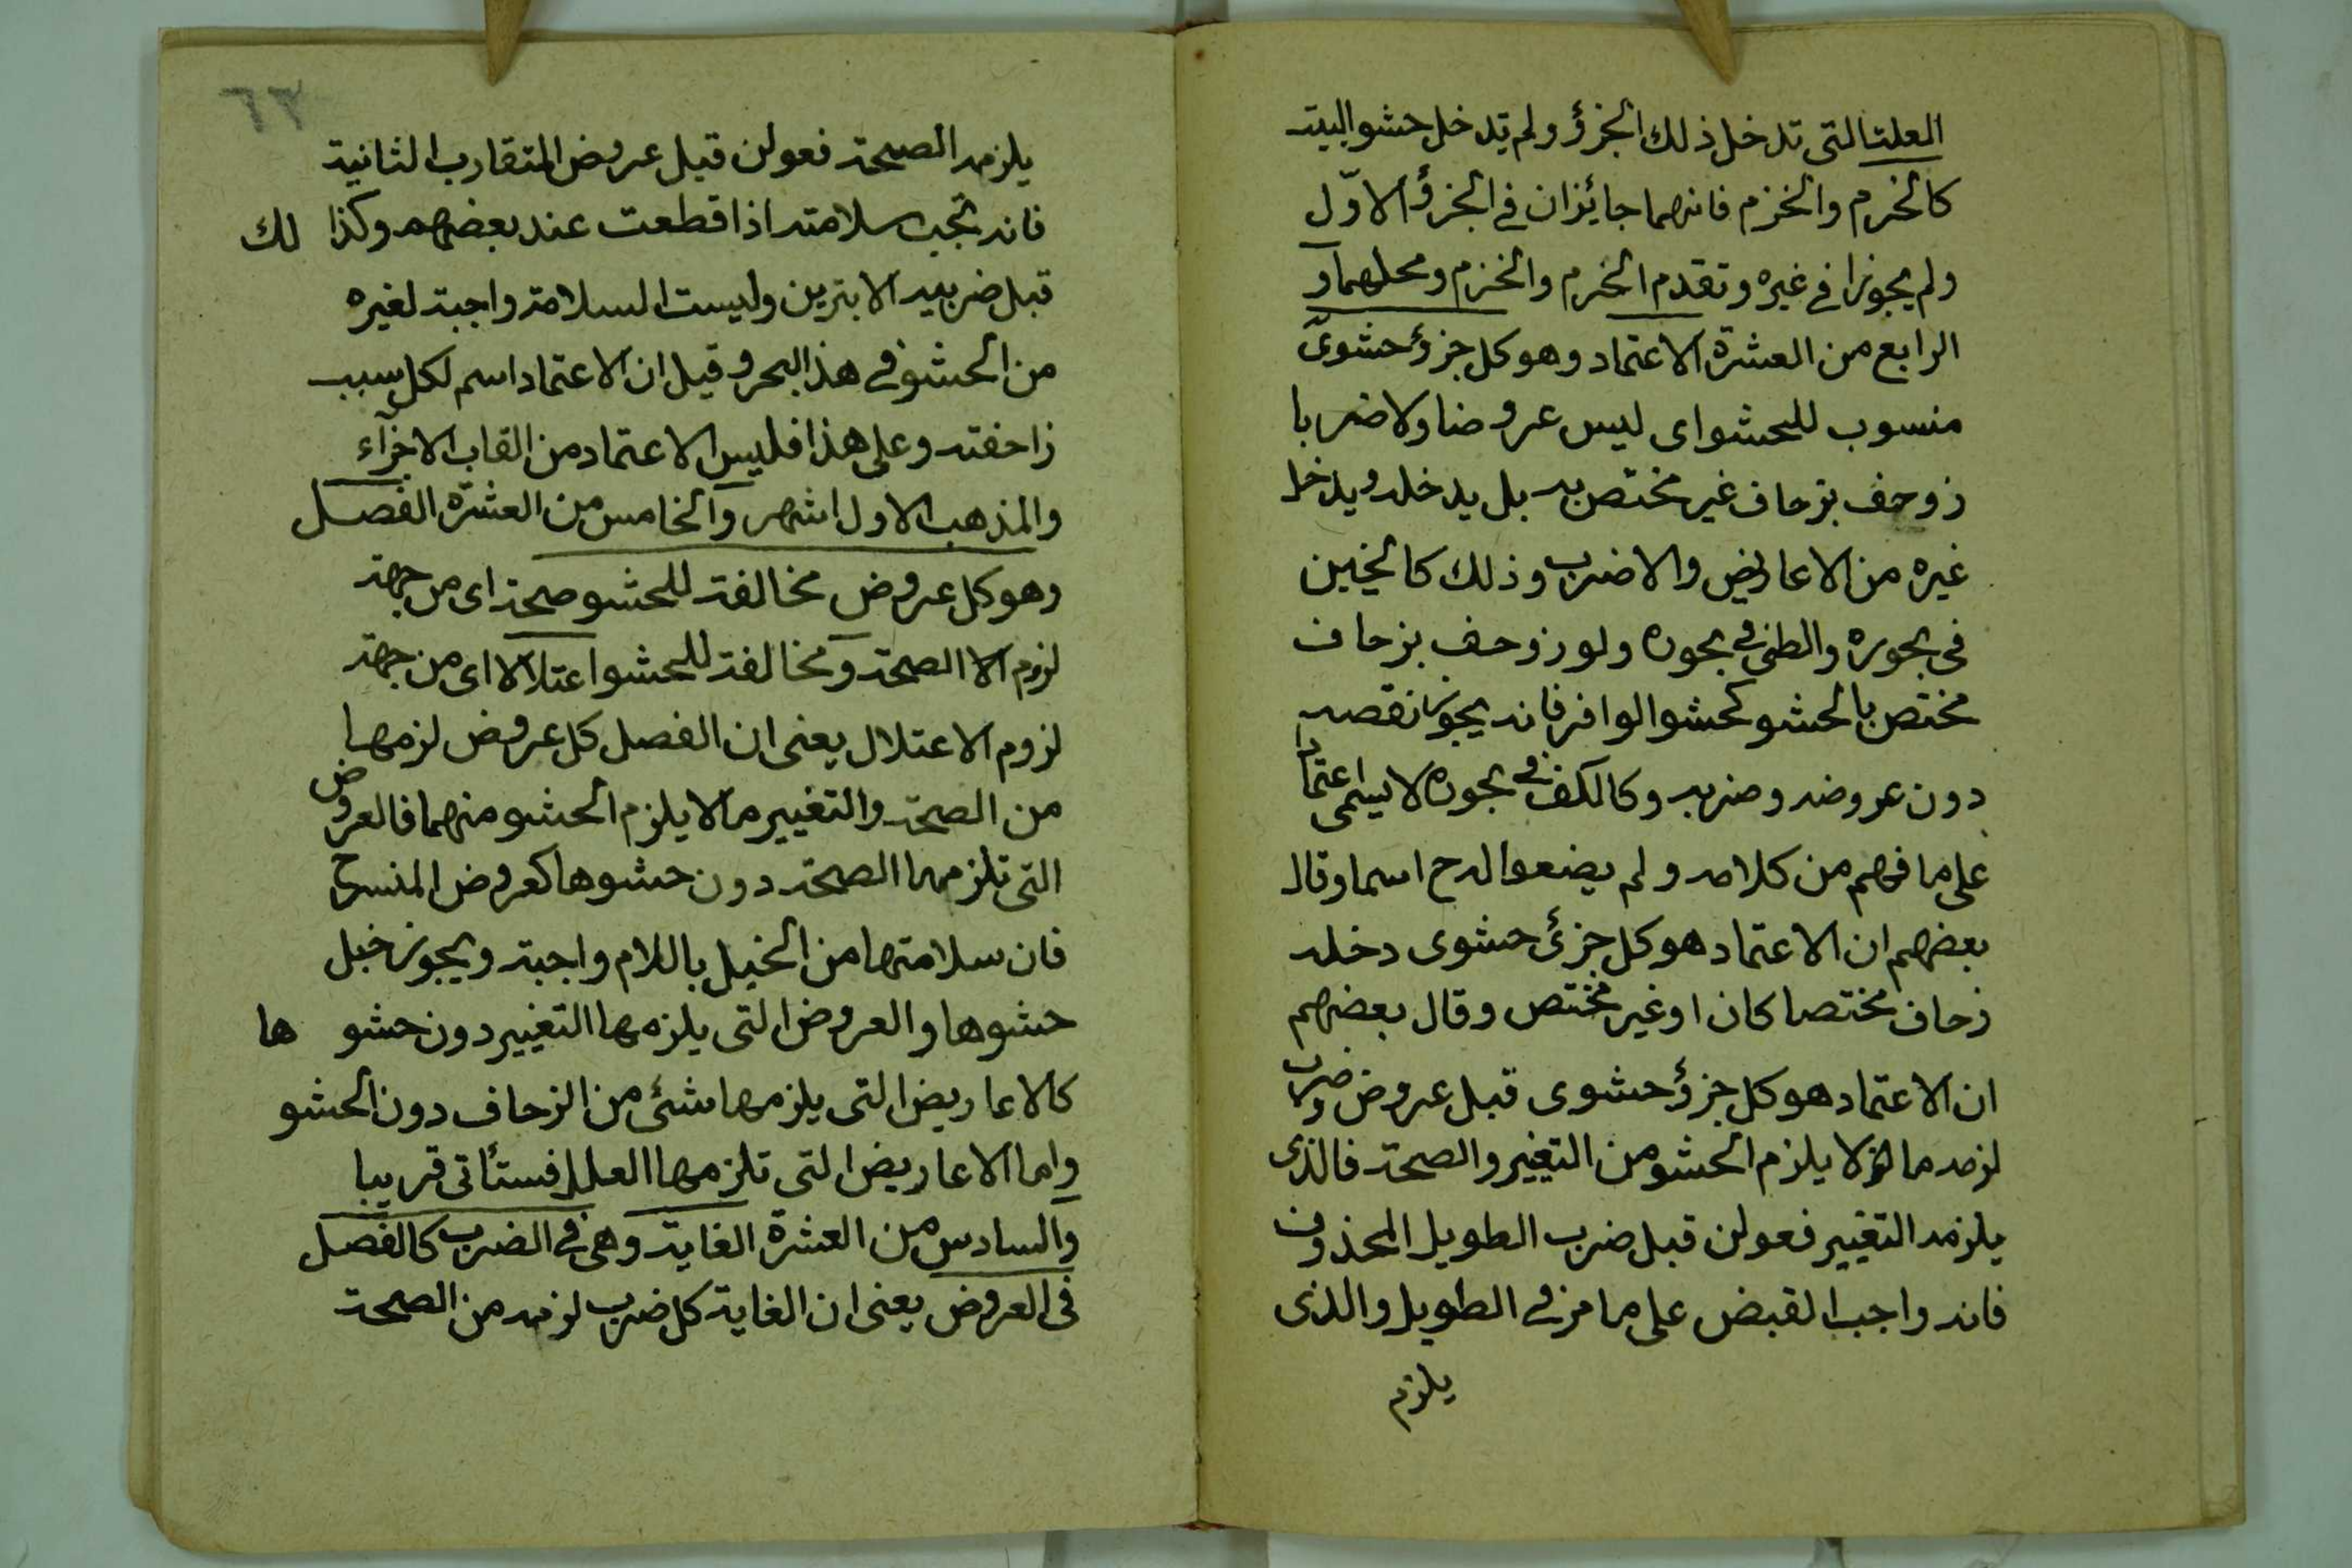 العلة التى تدخل ذلك الجزؤ ولم تدخل حشو البيت
كالخرم والخزم فانهما جائزان فى الجزؤ الاوّل
ولم يجوزا فى غيره وتقدم الخرم والخزم ومحلهما و
الرابع من العشرة الاعتماد وهو كل جزؤ حشوىّ
منسوب للحشو اى ليس عروضا ولا ضربا
زوحف بزحاف غير مختص به بل يدخله ويدخل
غيره من الاعاريض والاضرب وذلك كالخبن
فى بحوره والطى فى بحوره ولو زوحف بزحاف
مختص بالحشو كحشو الوافر فانه يجوز نقصه
دون عروضه وضربه وكالكف فى بحوره لا يسمى اعتمادا
على ما فهم من كلامه ولم يضعوا له ح اسما وقال
بعضهم ان الاعتماد هو كل جزئ حشوى دخله
زحاف مختصا كان او غير مختص وقال بعضهم
ان الاعتماد هو كل جزؤ حشوى قبل عروض وضرب
لزمه ما لا يلزم الحشو من التغيير والصحة فالذى
يلزمه التغيير فعولن قبل ضرب الطويل المحذوف
فانه واجب القبض على ما مر فى الطويل والذى
يلزم
٦٣
يلزمه الصحة فعولن قبل عروض المتقارب الثانية
فانه تجب سلامته اذا قطعت عند بعضهم وكذا لك
قبل ضربيه الابترين وليست السلامة واجبة لغيره
من الحشو فى هذا البحر وقيل ان الاعتماد اسم لكل سبب
زاحفته وعلى هذا فليس الاعتماد من القاب الاجزآء
والمذهب الاول اشهر والخامس من العشرة الفصل
وهو كل عروض مخالفة للحشو صحة اى من جهة
لزوم الا الصحة ومخالفة للحشو اعتلالا اى من جهة
لزوم الاعتلال يعنى ان الفصل كل عروض لزمها
من الصحة والتغيير ما لا يلزم الحشو منهما فالعروض
التى تلزمها الصحة دون حشوها كعروض المنسرح
فان سلامتها من الخبل باللام واجبة ويجوز خبل
حشوها والعروض التى يلزمها التغيير دون حشو ها
كالاعاريض التى يلزمها شئ من الزحاف دون الحشو
واما الاعاريض التى تلزمها العلل فستأتى قريبا
والسادس من العشرة الغاية وهى فى الضرب كالفصل
فى العروض يعنى ان الغاية كل ضرب لزمه من الصحة